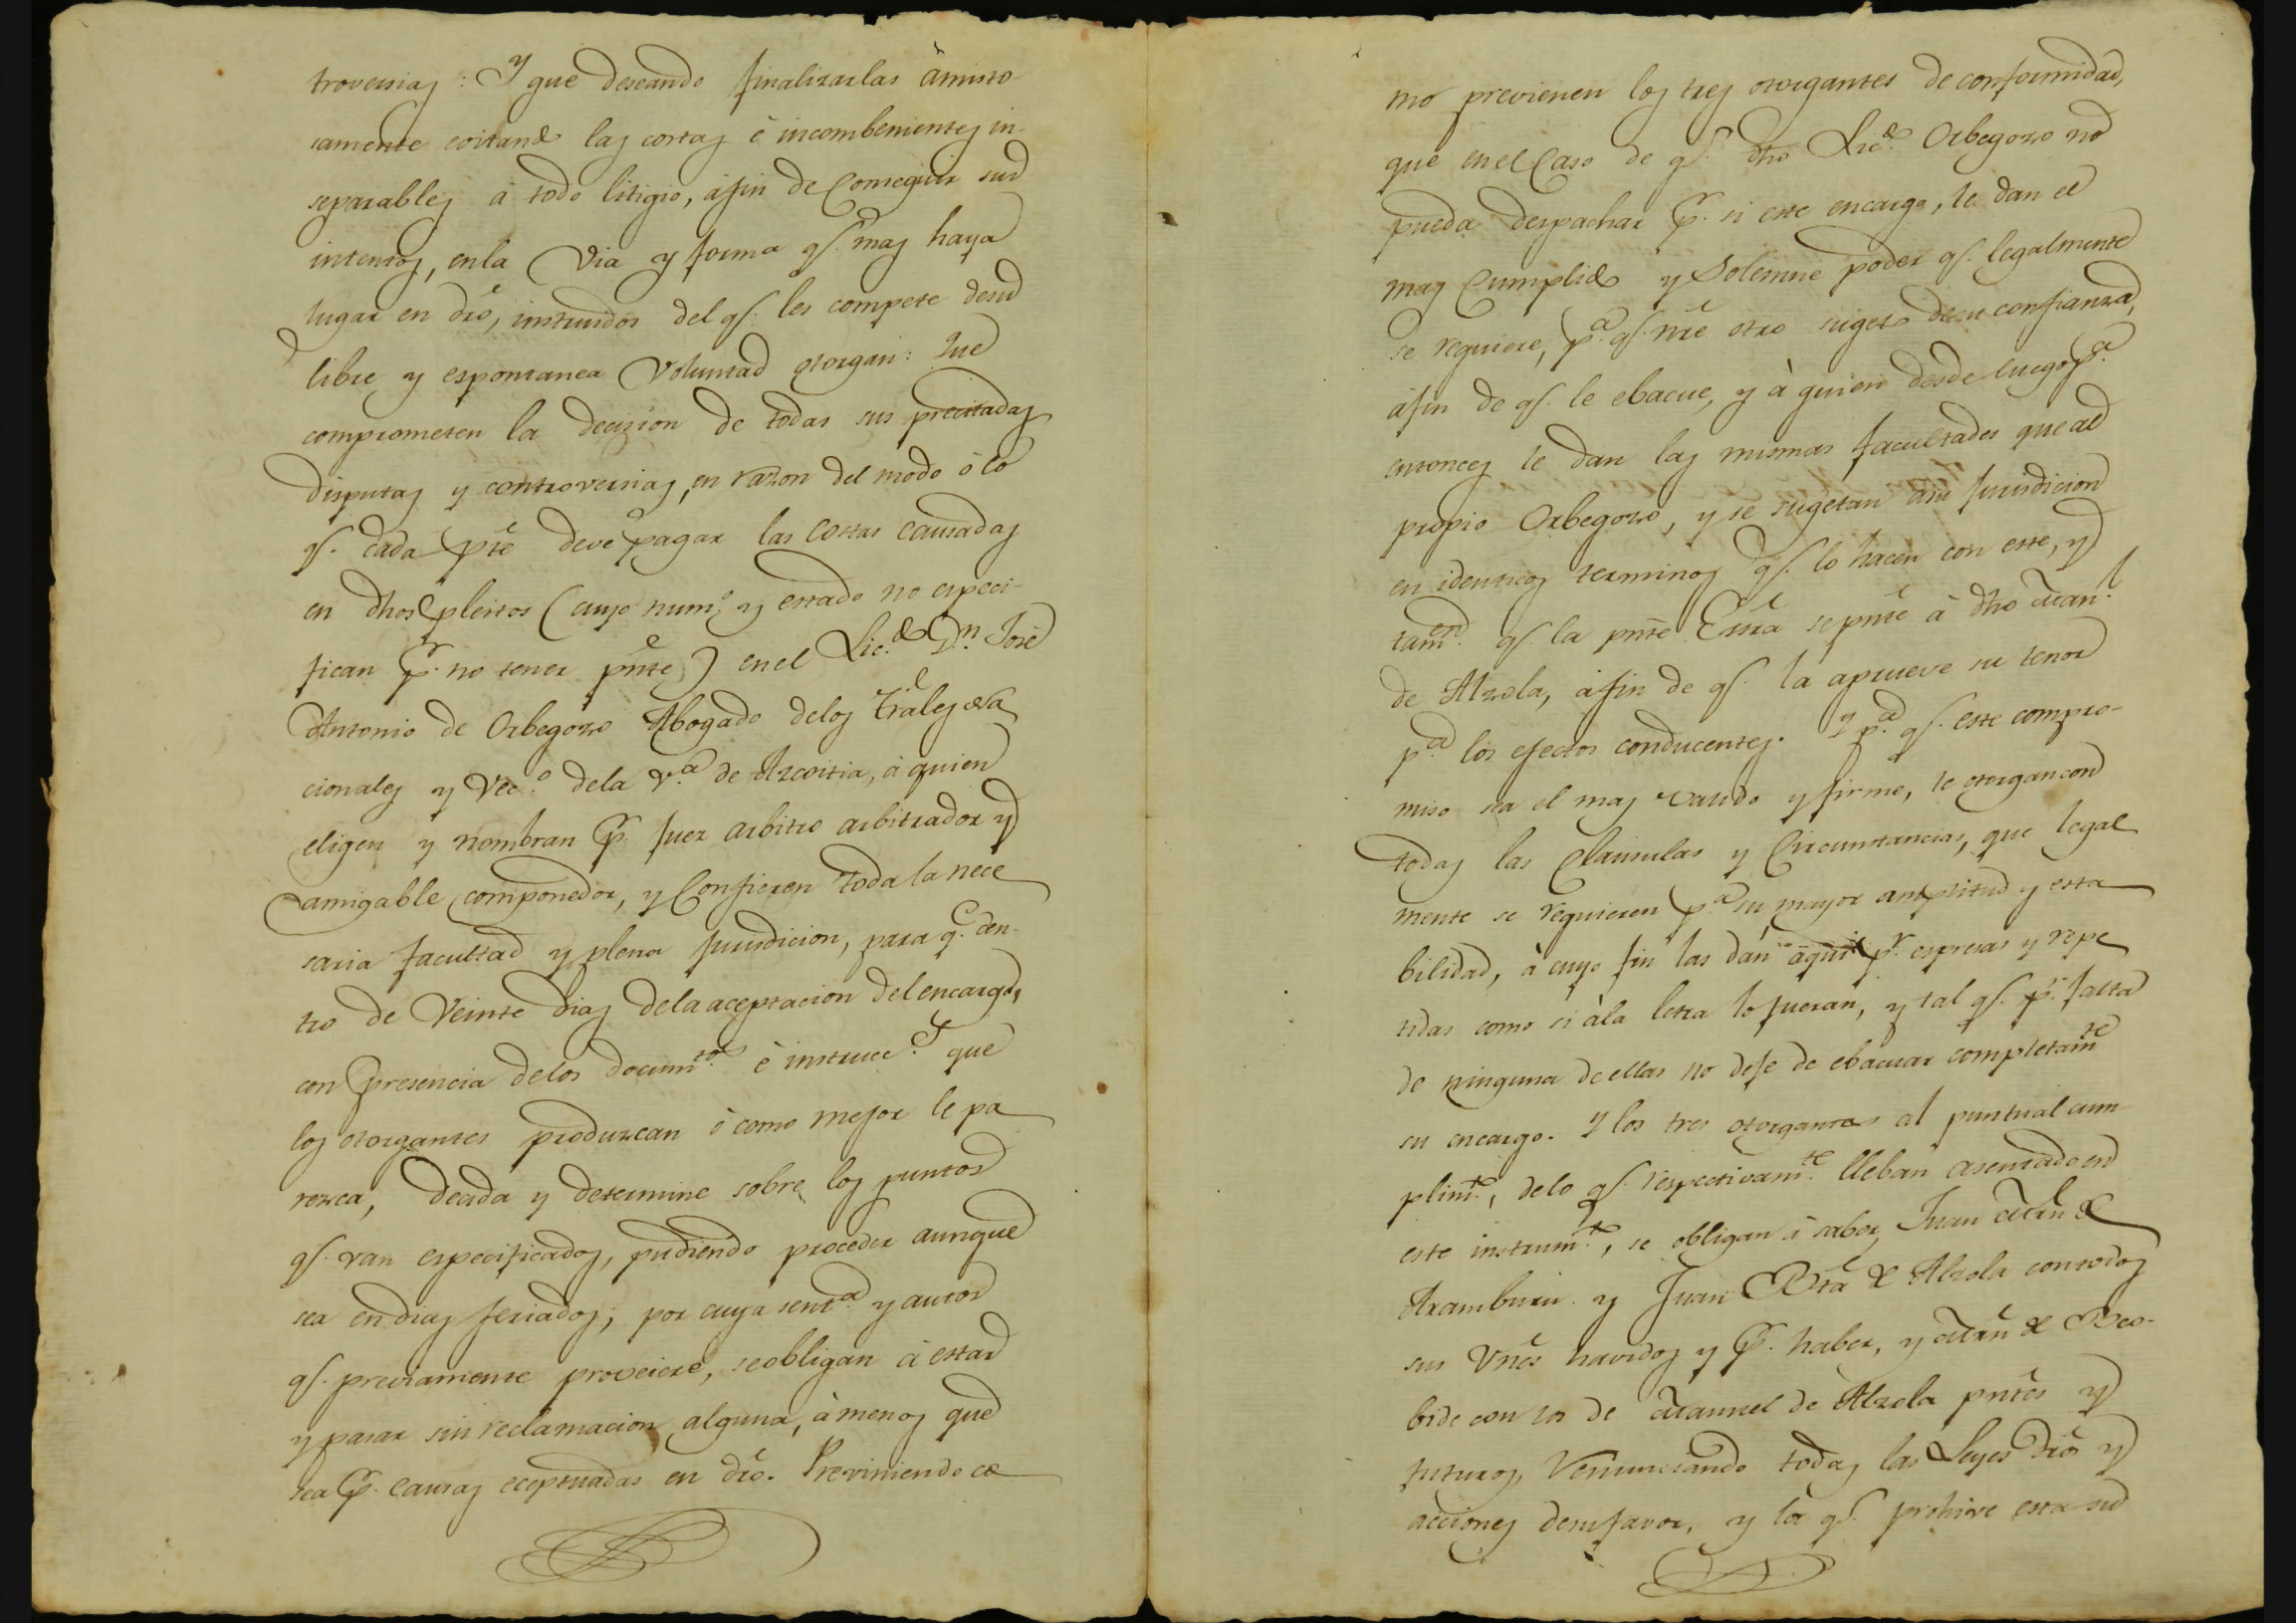 troversias: Y que deseando finalizarlas àmisto-
samente evitando las costas è incombenientes in-
separables à todo litigio, àfin de Conseguir sus
intentos, enla Via y forma qe. mas haya
lugar en dro, instruidos del qe. les compete desu
libre y espontanea Voluntad otorgan: Que
comprometen la decision de todas sus precitadas
disputas y controversias, en razon del modo ò lo
qe. cada pte deve pagar las costas causadas
en dhos pleitos (cuyo numo. y estado no especi-
fican pr. no tener pnte) en el Licdo. Dn. José
Antonio de Orbegozo Abogado delos Trales na
cionales y Veco. dela Va. de Azcoitia, à quien
eligen y nombran pr. Juez arbitro arbitrador y
amigable componedor, y Confieren toda la nece
saria facultad y plena Jurisdicion, para qe. den-
tro de Veinte dias dela aceptacion del encargo,
con presencia delos documtos. è instrucc.s que
los otorgantes produzcan ò como mejor le pa
rezca, decida y determine sobre los puntos
qe. van especificados, pudiendo proceder aunque
sea en dias feriados; por cuya senta. y autos
qe. previamente proveiere, seobligan à estar
y pasar sin reclamacion alguna, àmenos que
sea pr. causas eceptuadas en dro. Previniendo co
mo previenen los tres otorgantes de conformidad,
que en el Caso de qe. dho Licdo. Orbegozo no
pueda despachar pr. si este encargo, le dan el
mas Cumplido y Solemne poder qe. legalmente
se requiere, pa. qe. nre otro sugeto desu confianza,
àfin de qe. le ebacue, y à quien desde luego pa.
entonces le dan las mismas facultades que al
propio Orbegozo, y se sugetan àsu Jurisdicion
en identicos terminos qe. lo hacen con este, y
tamen. qe. la pnte Essra se pnte à dho Manl.
de Alzola, àfin de qe. la aprueve su tenor
pa. los efectos conducentes. Y pa. qe. este compro-
miso sea el mas valido y firme, le otorgan con
todas las Clausulas y Circunstancias, que legal
mente se requieren pa. su mayor amplitud y esta
bilidad, à cuyo fin las dan aqui pr. espresas y repe
tidas como si àla letra lo fueran, y tal qe. pr. falta
de ninguna de ellas no deje de ebacuar completamte
su encargo. Y los tres otorgantes al puntual cum
plimto., delo qe. respectivamte. lleban asentado en
este instrumto., se obligan à saber, Juan Mrn de
Aramburu y Juan Bta de Alzola con todos
sus Vnes havidos y pr. haber, y Mrn de Beo-
bide con los de Manuel de Alzola pntes y
futuros, Renunciando todas las Leyes dros y
acciones desu favor, y la qe. prohive esta su